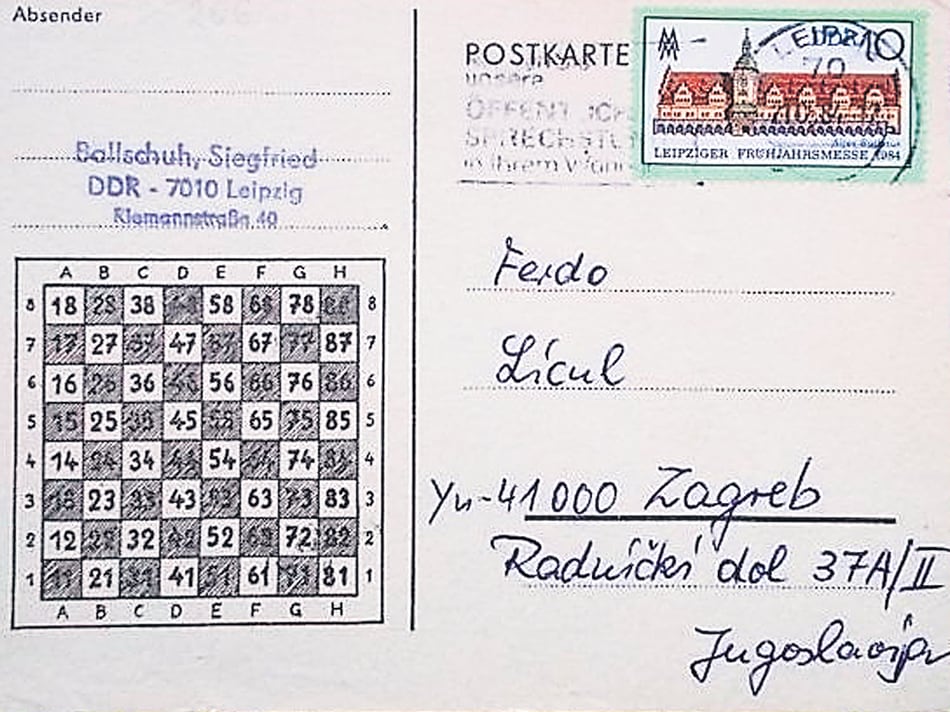 Absender
Ballschuh, Siegfried
DDR - 7010 Leipzig
Riemannstraße 40
A B C D E F G H
8 18 28 38 48 58 68 78 88 8
7 17 27 37 47 57 67 77 87 7
6 16 26 36 46 56 66 76 86 6
5 15 25 35 45 55 65 75 85 5
4 14 24 34 44 54 64 74 84 4
3 13 23 33 43 53 63 73 83 3
2 12 22 32 42 52 62 72 82 2
1 11 21 31 41 51 61 71 81 1
A B C D E F G H
POSTKARTE
unsere
ÖFFENTLICH
SPRECHST
in Ihrem
DDR 10
LEIPZIG
70
LEIPZIGER FRÜHJAHRSMESSE 1984
Ferdo
Lícul
Yu-41000 Zagreb
Radnički dol 37A/II
Jugoslavija